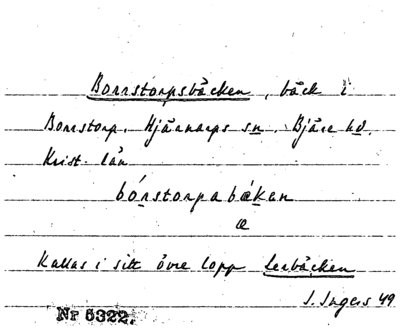 Borrstorpsbäcken, bäck i
Borrstorp, Hjärnarps sn. Bjäre hd.
Krist. län
bórstorpabækan
æ
Kallas i sitt övre lopp Lerbäcken
I. Ingers 49
Nr 5322.